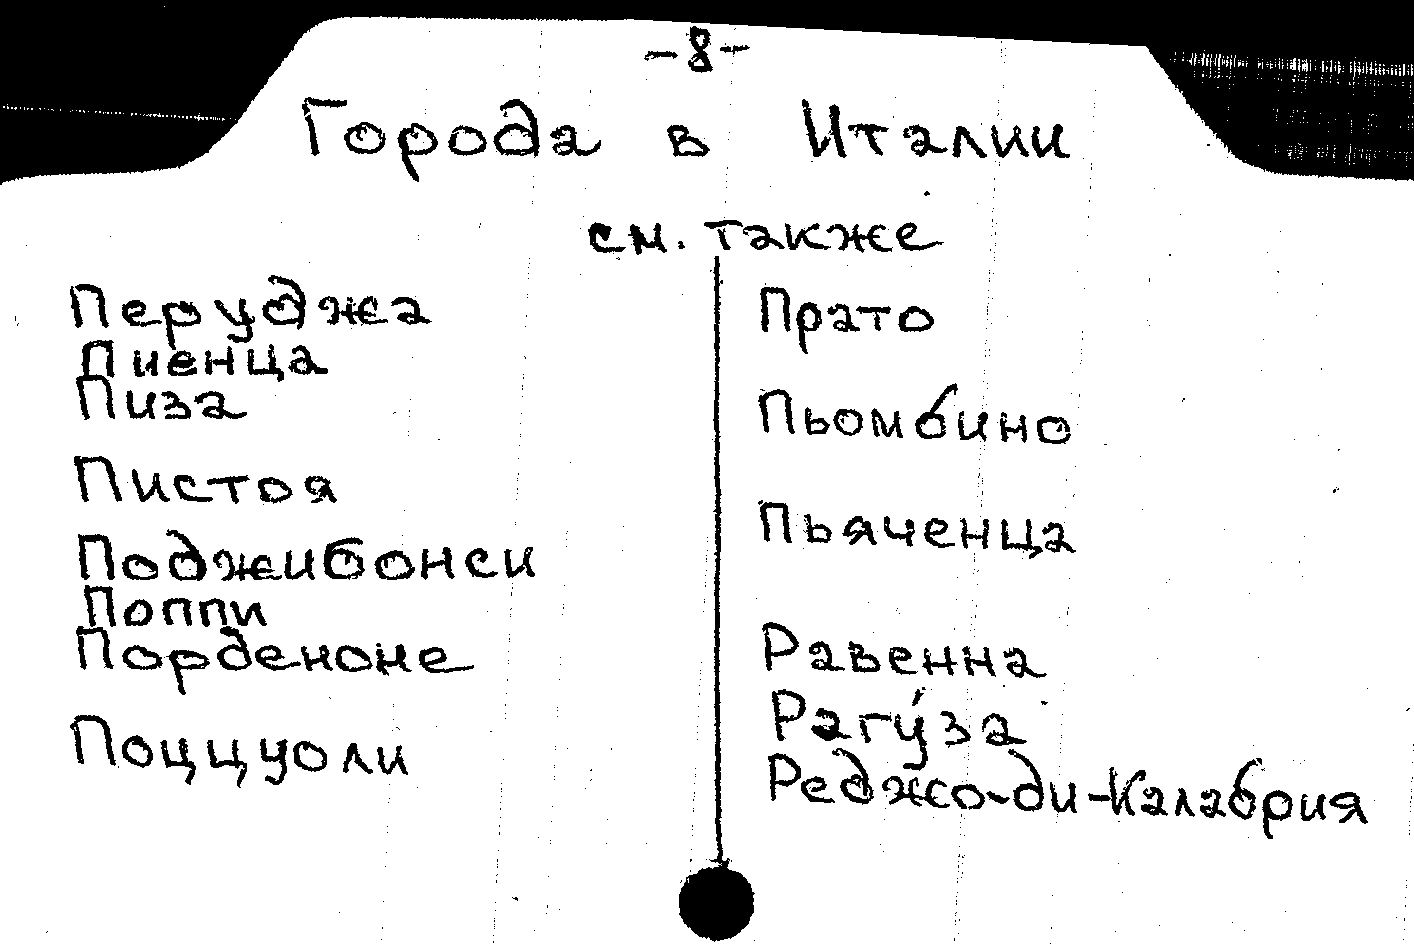 -8-
Города в Италии
см. также
Перуджа
Пиенца
Пиза
Пистоя
Поджибонси
Поппи
Порденоне
Поццуоли
Прато
Пьомбино
Пьяченца
Равенна
Рагу́за
Реджо-ди-Калабрия